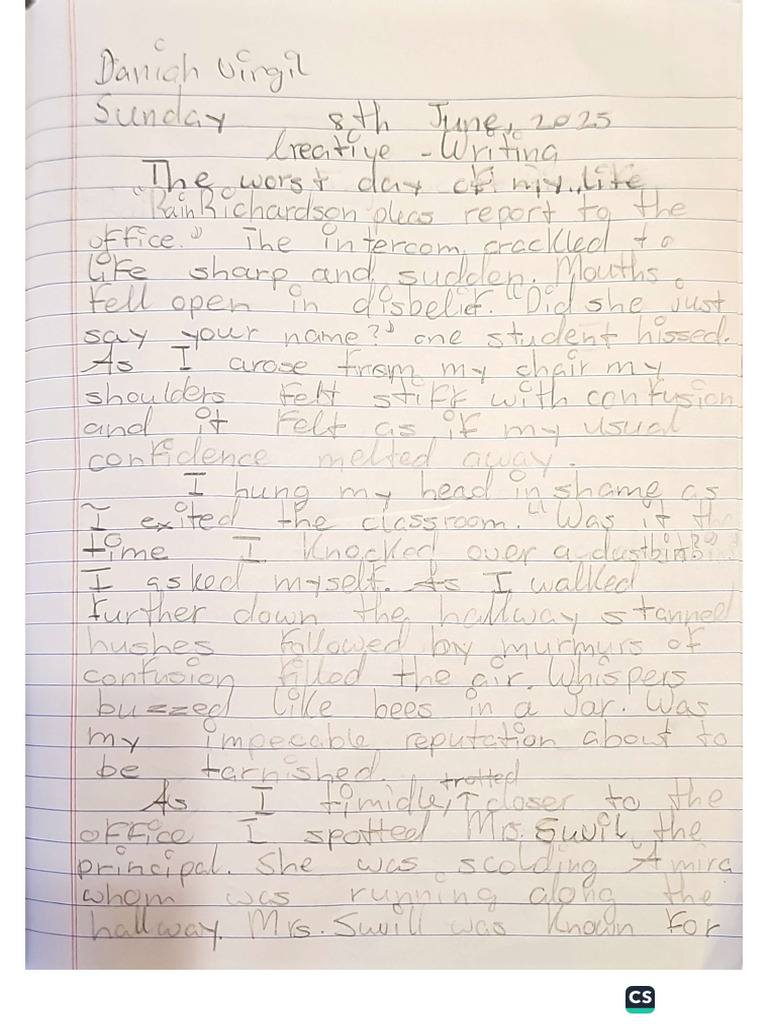 Daniah Virgil
Sunday 8th June, 2025
Creative - Writing
The worst day of my life
"Rain Richardson pleas report to the
office." The intercom crackled to
life sharp and sudden. Mouths
fell open in disbelief. "Did she just
say your name?" one student hissed.
As I arose from my chair my
shoulders felt stiff with confusion
and it felt as if my usual
confidence melted away.
I hung my head in shame as
I exited the classroom. "Was it the
time I knocked over a dustbin?"
I asked myself. As I walked
further down the hallway stanned
hushes followed by murmurs of
confusion filled the air. Whispers
buzzed like bees in a Jar. Was
my impecable reputation about to
be tarnished.
As I timidle, trotted closer to the
office I spotted Mrs. Suvil, the
principal. She was scolding Amira
whom was running along the
hallway. Mrs. Suvill was known for
CS